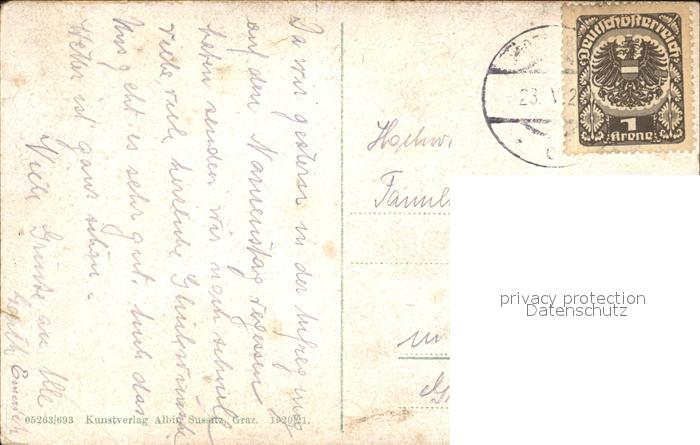 Da wir gestern in der Aufreg ung
auf den Namenstag vergessen
haben senden wir noch schnell
viele viele herzliche Glückwünsche
Uns geht es sehr gut. Auch das
Wetter ist ganz schön.
Viele Grüsse an Alle
Hochw.
Famil
in
Deutschösterreich
1
Krone
23. V. 2
privacy protection
Datenschutz
05263/693 Kunstverlag Albin Sussitz, Graz. 1920/21.